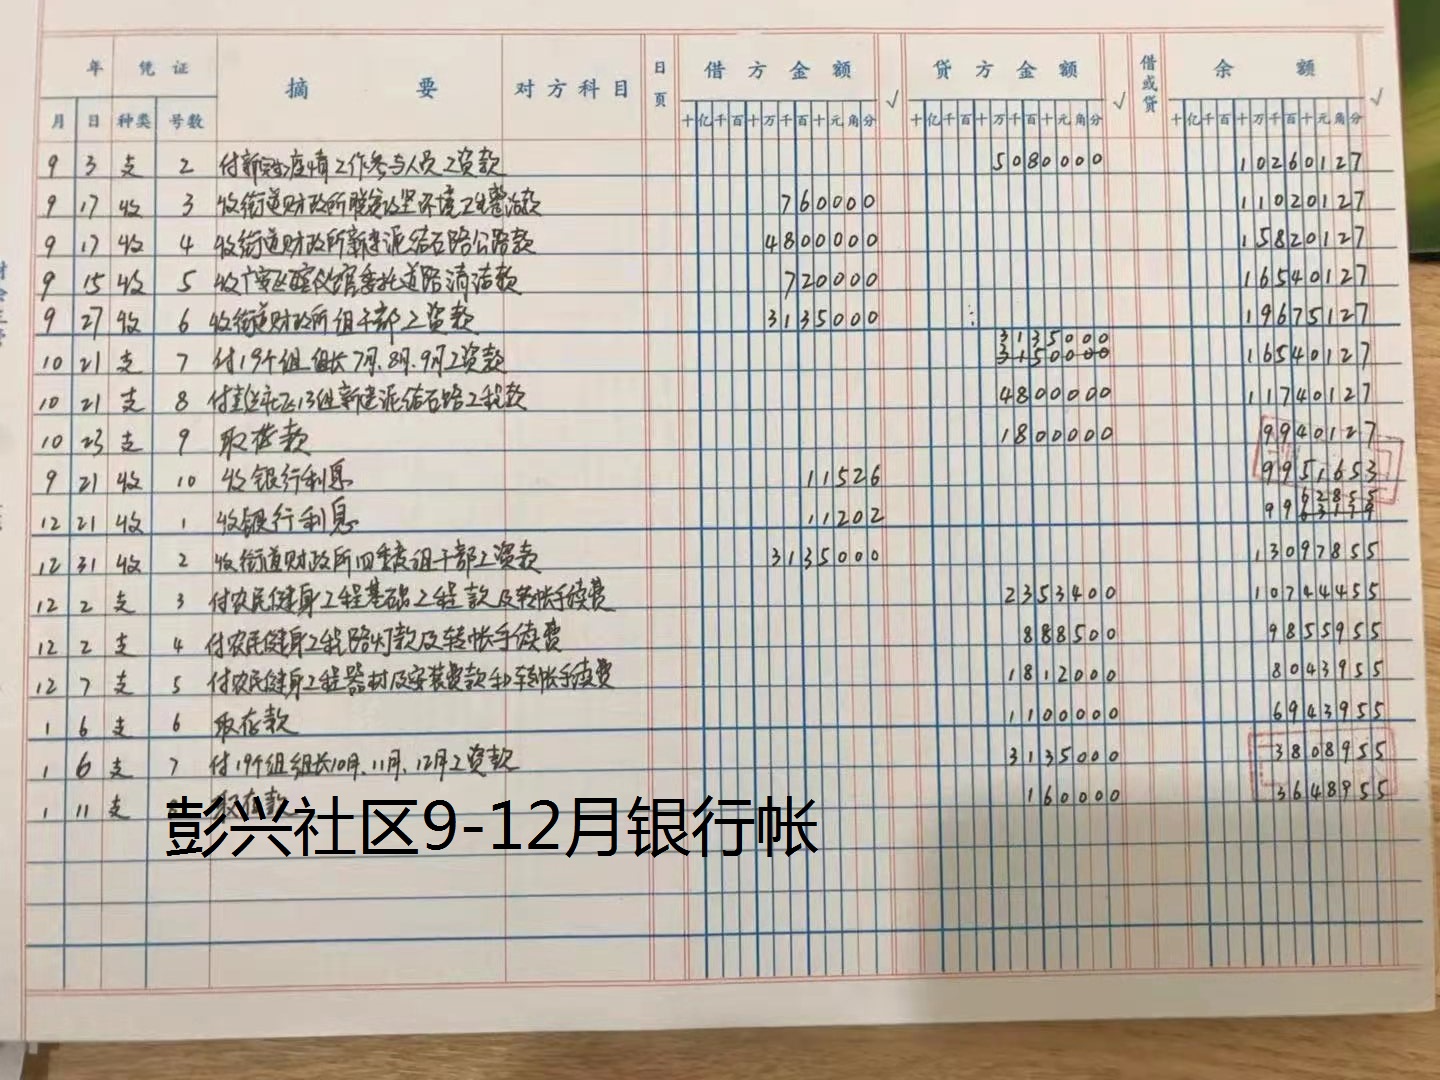 年 凭证 摘要 对方科目 日页 借方金额 √ 贷方金额 √ 借或贷 余额 √
月 日 种类 号数 十亿千百十万千百十元角分 十亿千百十万千百十元角分 十亿千百十万千百十元角分
9 3 支 2 付新冠疫情工作参与人员工资款 5080000 10260127
9 17 收 3 收街道财政所 环境卫生整治款 760000 11020127
9 17 收 4 收街道财政所新建泥结石路公路款 4800000 15820127
9 15 收 5 收广安区殡仪馆委托道路清洁款 720000 16540127
9 27 收 6 收街道财政所组干部工资款 3135000 19675127
10 21 支 7 付19个组组长7月、8月、9月工资款 3135000 3150000 16540127
10 21 支 8 付 13组新建泥结石路工程款 4800000 11740127
10 23 支 9 取存款 1800000 9940127
9 21 收 10 收银行利息 11526 9951653
12 21 收 1 收银行利息 11202 9962855
12 31 收 2 收街道财政所四季度组干部工资款 3135000 13097855
12 2 支 3 付农民健身工程基础工程款及转帐手续费 2353400 10744455
12 2 支 4 付农民健身工程路灯款及转帐手续费 888500 9855955
12 7 支 5 付农民健身工程器材及安装费款和转帐手续费 1812000 8043955
1 6 支 6 取存款 1100000 6943955
1 6 支 7 付19个组组长10月、11月、12月工资款 3135000 3808955
1 11 支 取存款 160000 3648955
彭兴社区9-12月银行帐